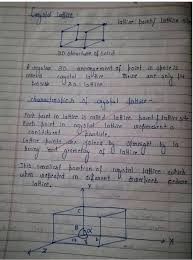 Crystal lattice
lattice point/ lattice site
3D structure of solid
A regular 3D arrangement of point in space is
called crystal lattice. There are only 14
3D lattice
characteristics of crystal lattice -
Each point in lattice is called lattice point / lattice site
Each point in crystal lattice represent a
constituent particle.
Lattice points are joined by straight to
bring out geometry of lattice.
The smallest portion of crystal lattice which
when repeated in different directions
lattice.